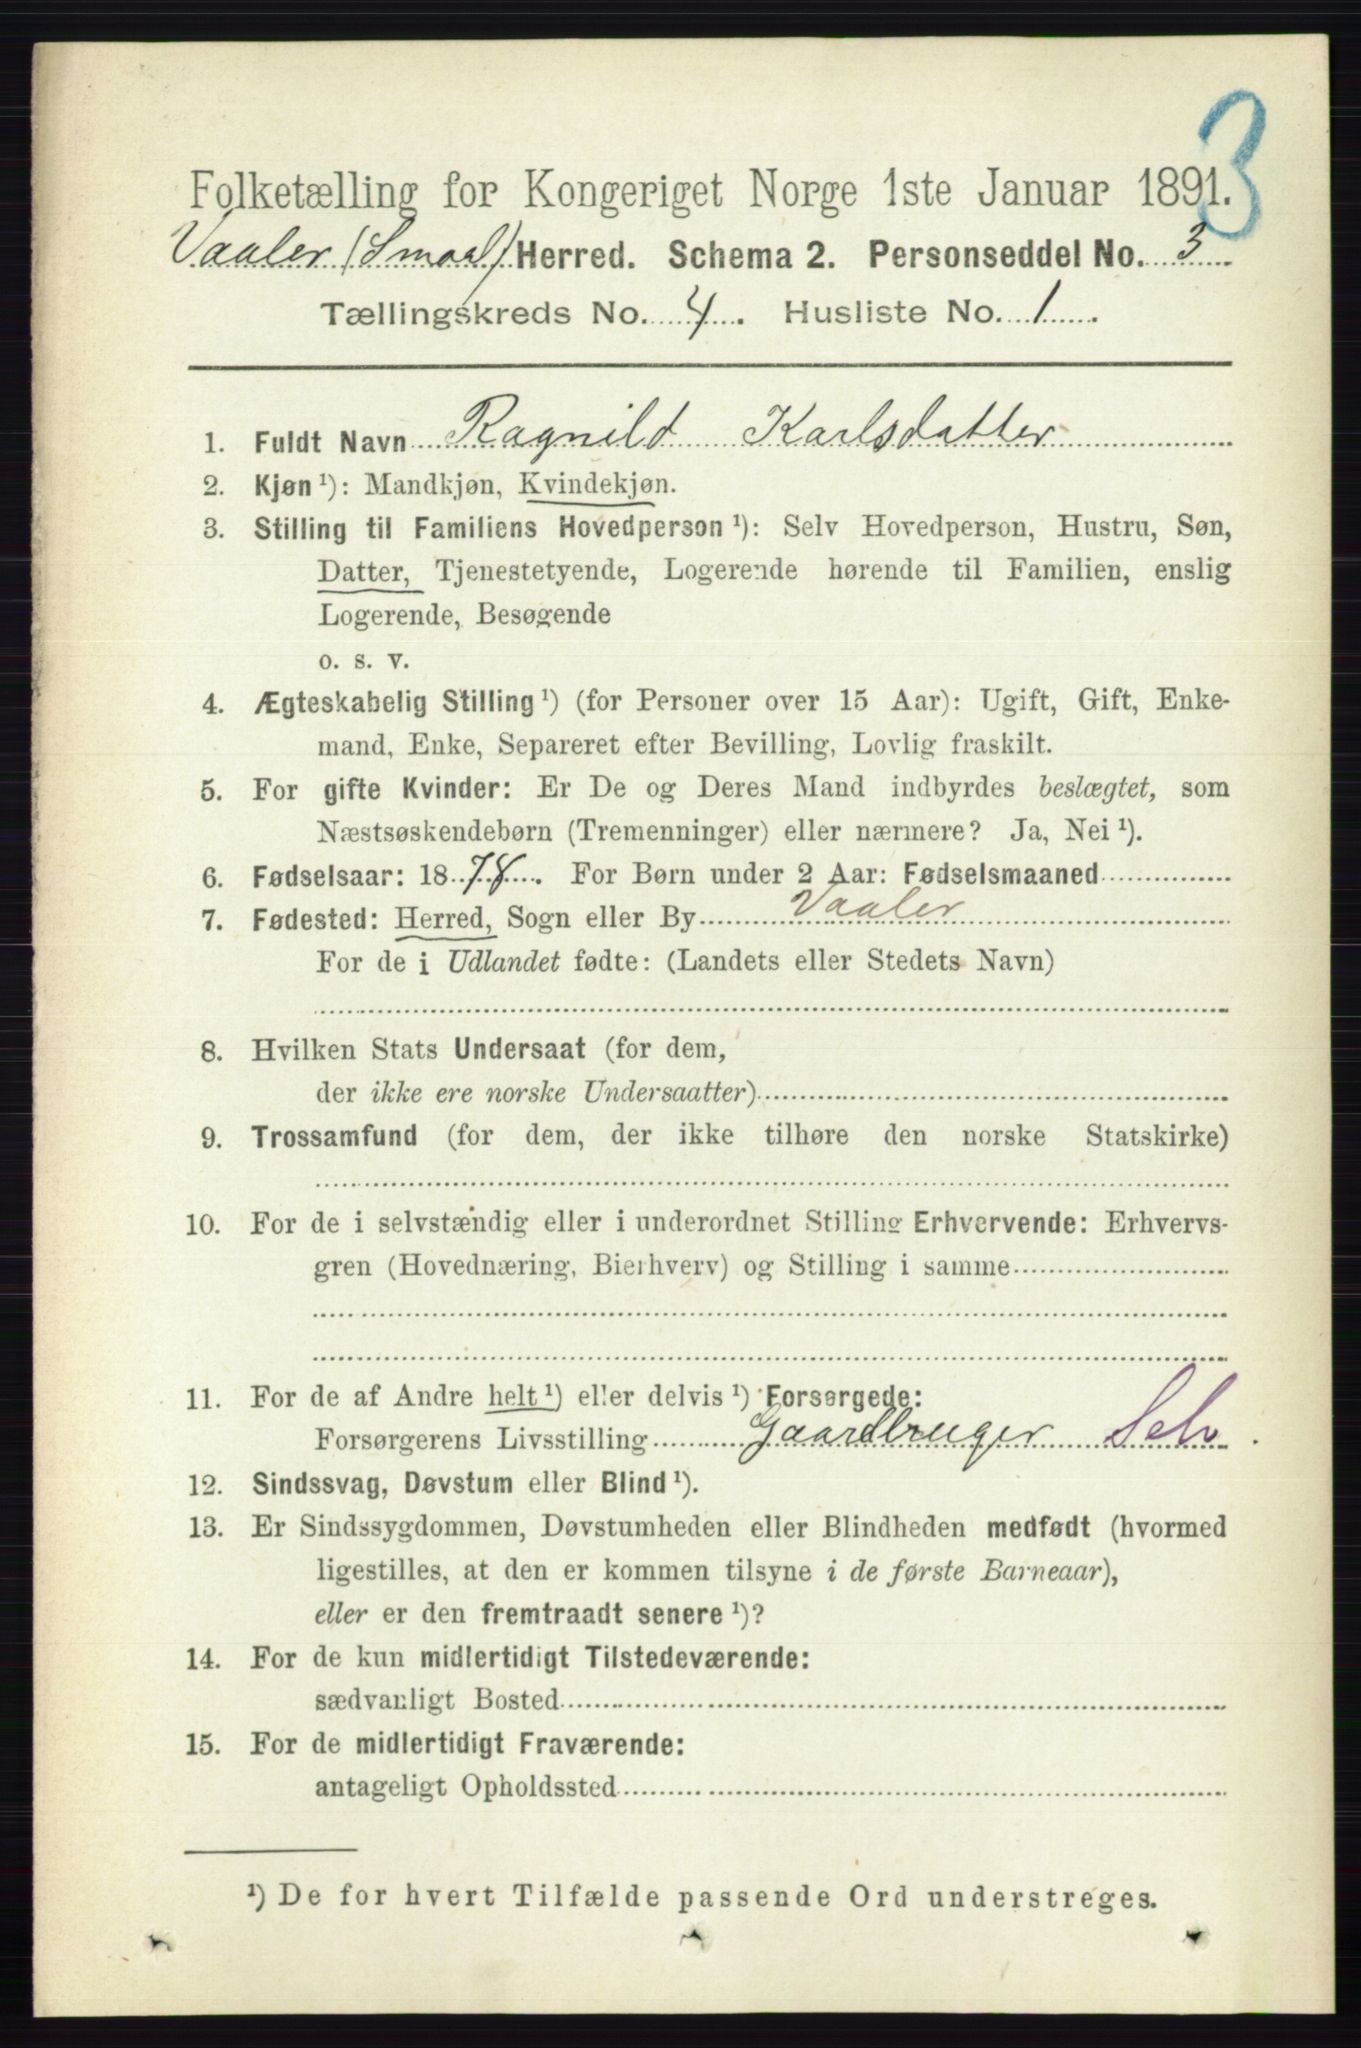 3
Folketælling for Kongeriget Norge 1ste Januar 1891.
Vaaler (Smaal) Herred. Schema 2. Personseddel No. 3
Tællingskreds No. 4. Husliste No. 1.
1. Fuldt Navn Ragnild Karlsdatter
2. Kjøn ¹): Mandkjøn, Kvindekjøn.
3. Stilling til Familiens Hovedperson ¹): Selv Hovedperson, Hustru, Søn,
Datter, Tjenestetyende, Logerende hørende til Familien, enslig
Logerende, Besøgende
o. s. v.
4. Ægteskabelig Stilling ¹) (for Personer over 15 Aar): Ugift, Gift, Enke-
mand, Enke, Separeret efter Bevilling, Lovlig fraskilt.
5. For gifte Kvinder: Er De og Deres Mand indbyrdes beslægtet, som
Næstsøskendebørn (Tremenninger) eller nærmere? Ja, Nei ¹).
6. Fødselsaar: 1878. For Børn under 2 Aar: Fødselsmaaned
7. Fødested: Herred, Sogn eller By Vaaler
For de i Udlandet fødte: (Landets eller Stedets Navn)
8. Hvilken Stats Undersaat (for dem,
der ikke ere norske Undersaatter)
9. Trossamfund (for dem, der ikke tilhøre den norske Statskirke)
10. For de i selvstændig eller i underordnet Stilling Erhvervende: Erhvervs-
gren (Hovednæring, Bierhverv) og Stilling i samme
11. For de af Andre helt ¹) eller delvis ¹) Forsørgede:
Forsørgerens Livsstilling Gaardbruger Selv.
12. Sindssvag, Døvstum eller Blind ¹).
13. Er Sindssygdommen, Døvstumheden eller Blindheden medfødt (hvormed
ligestilles, at den er kommen tilsyne i de første Barneaar),
eller er den fremtraadt senere ¹)?
14. For de kun midlertidigt Tilstedeværende:
sædvanligt Bosted
15. For de midlertidigt Fraværende:
antageligt Opholdssted
¹) De for hvert Tilfælde passende Ord understreges.